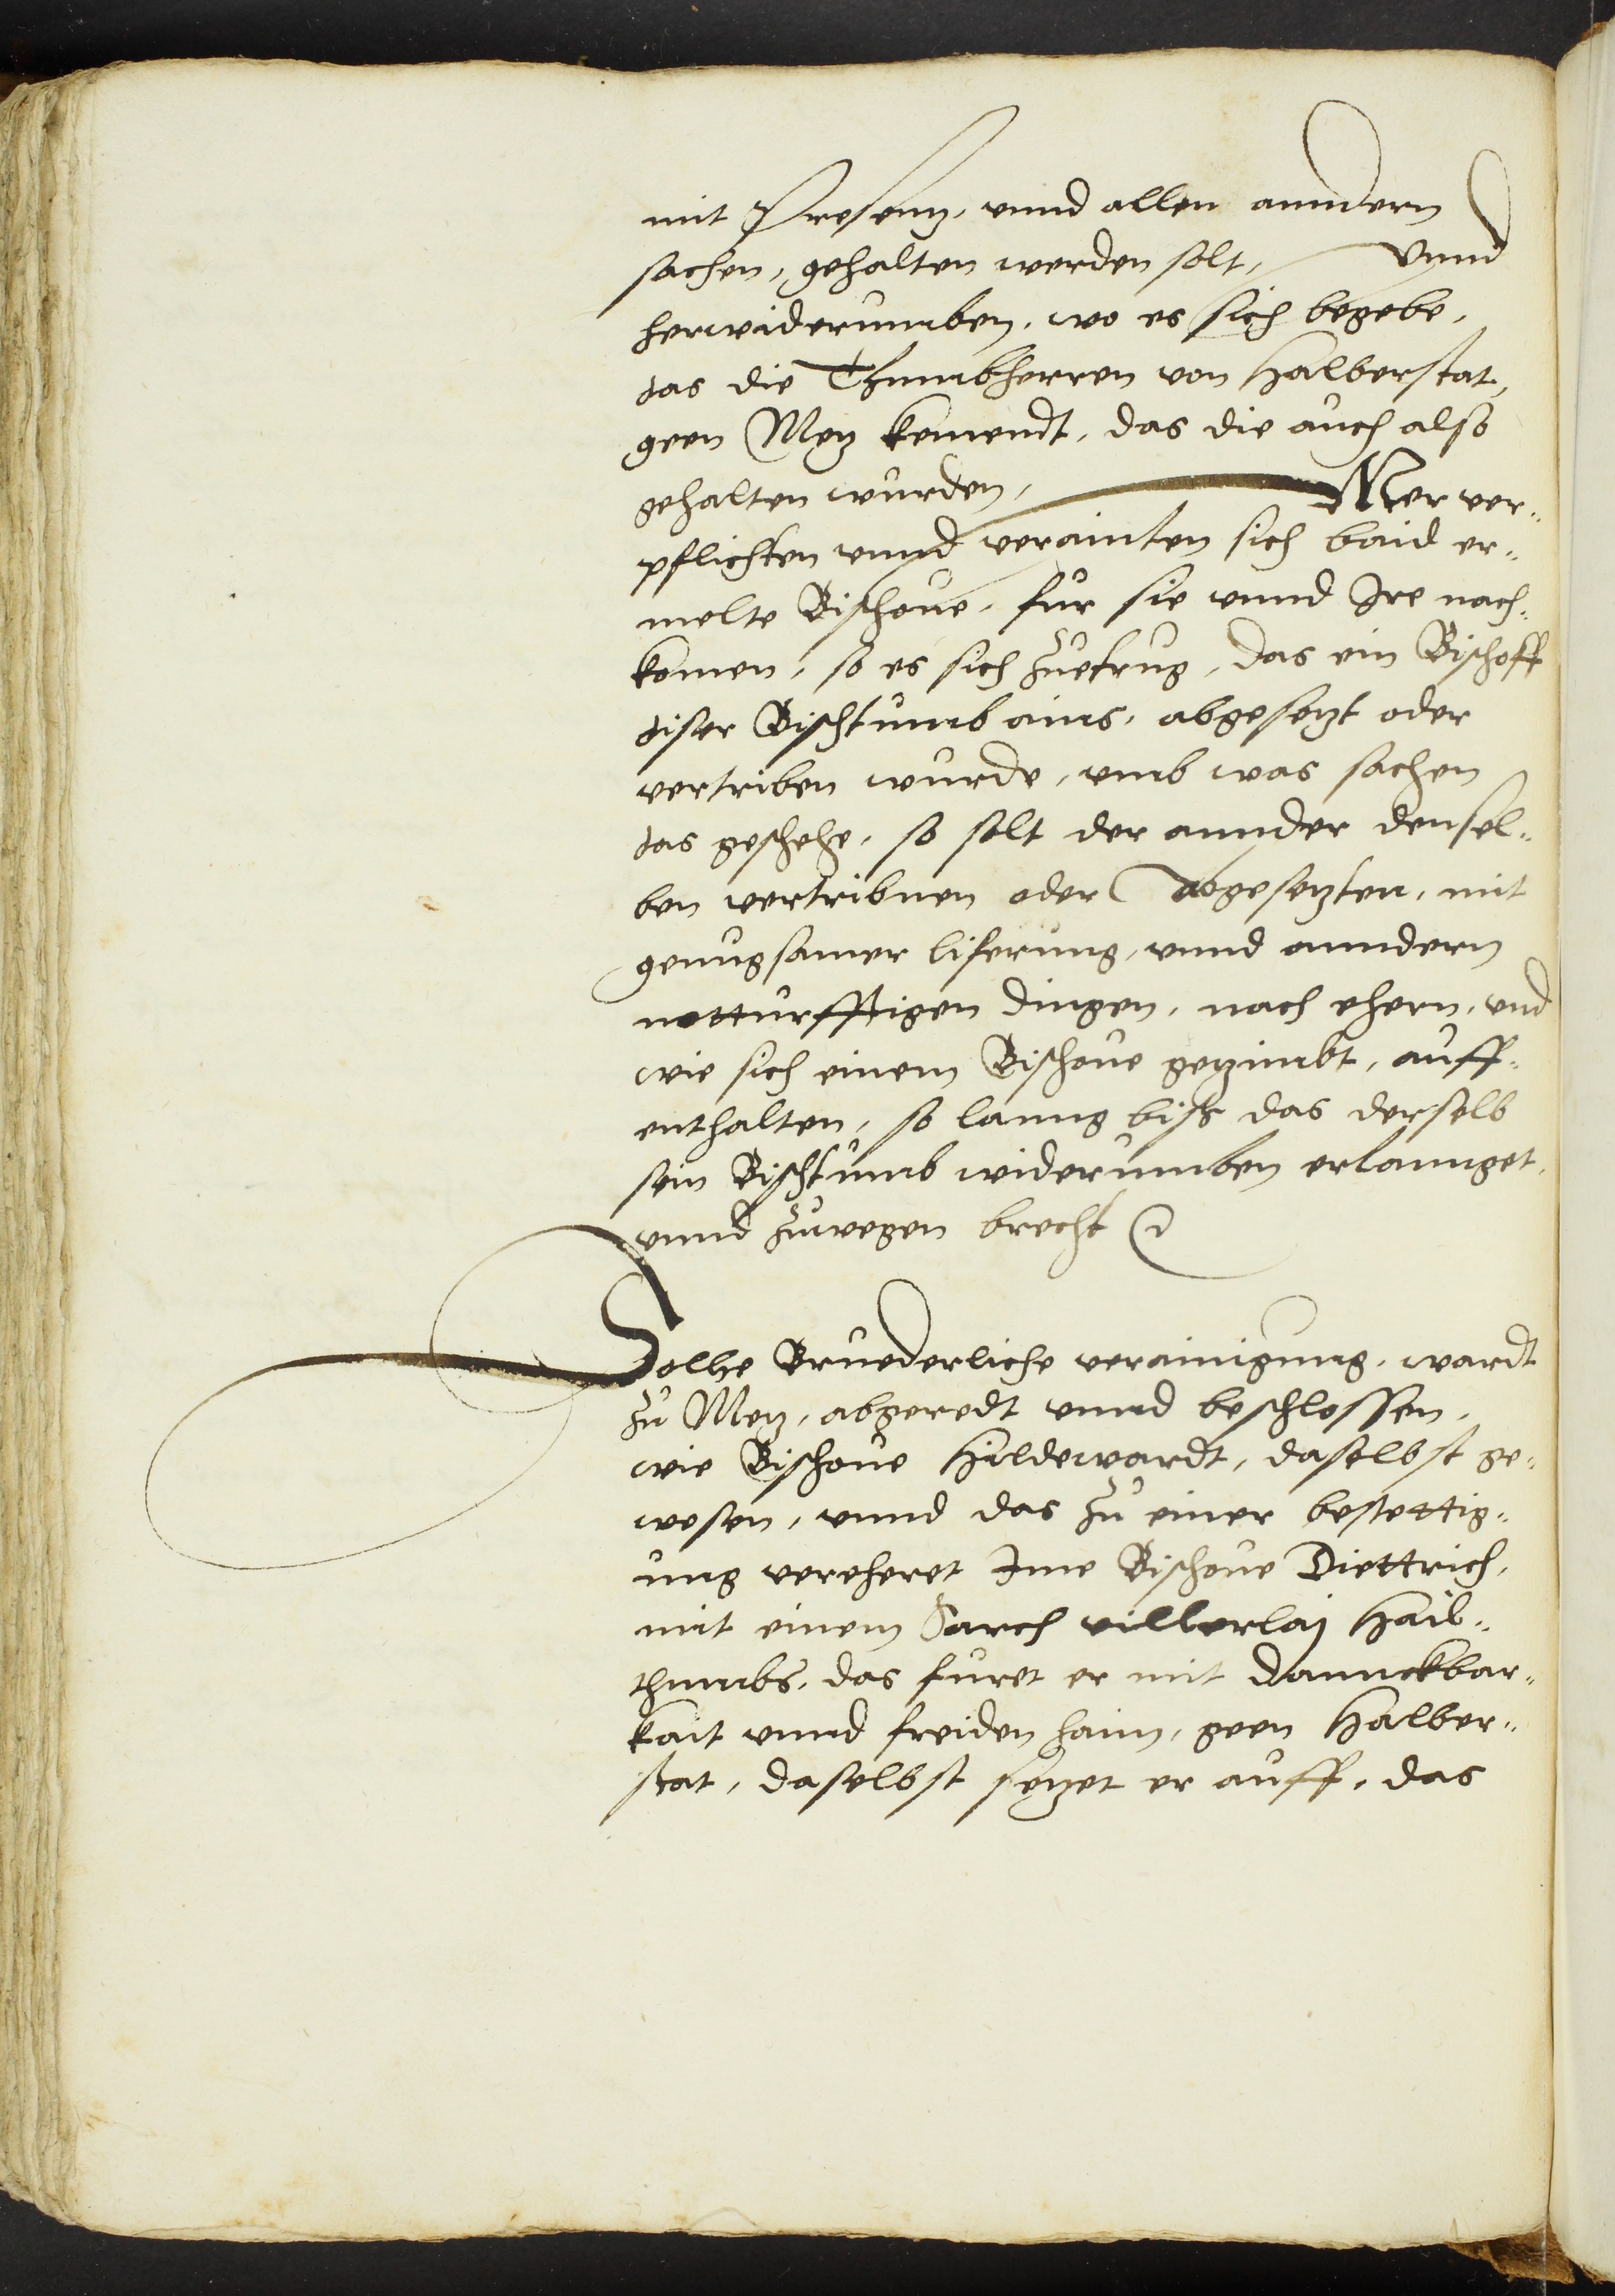 mit Presentz, unnd allen anndern
sachen, gehalten werden solt, Unnd
herwiderumben, wo es sich begebe,
das die Thumbherren von Halberstat,
geen Metz kemendt, das die auch also
gehalten wurden, Mer ver-
pflichten unnd verainten sich baid er-
melte Bischove, für sie unnd Ire nach-
komen, so es sich zuetrug, das ein Bischoff
diser Bischtumb ains, abgesetzt oder
vertriben wurde, umb was sachen
das geschehe, so solt der annder densel-
ben vertribnen oder Abgesetzten, mit
genugsamer liferung, unnd anndern
notturfftigen dingen, nach ehern, und
wie sich einem Bischove gezimbt, auff-
enthalten, so lanng biss das derselb
sein Bischtumb widerumben erlannget,
unnd zuwegen brecht
Solhe Bruederliche verainigung, wardt
zu Metz, abgeredt unnd beschlossen,
wie Bischove Hildewardt, daselbst ge-
wesen, unnd das zu einer bestettig-
ung vereheret Ime Bischove Diettrich,
mit einem Sarch villerlaj Hail-
thumbs, das furet er mit Dannckbar-
kait unnd freiden haim, geen Halber-
stat, daselbst setzet er auff, das